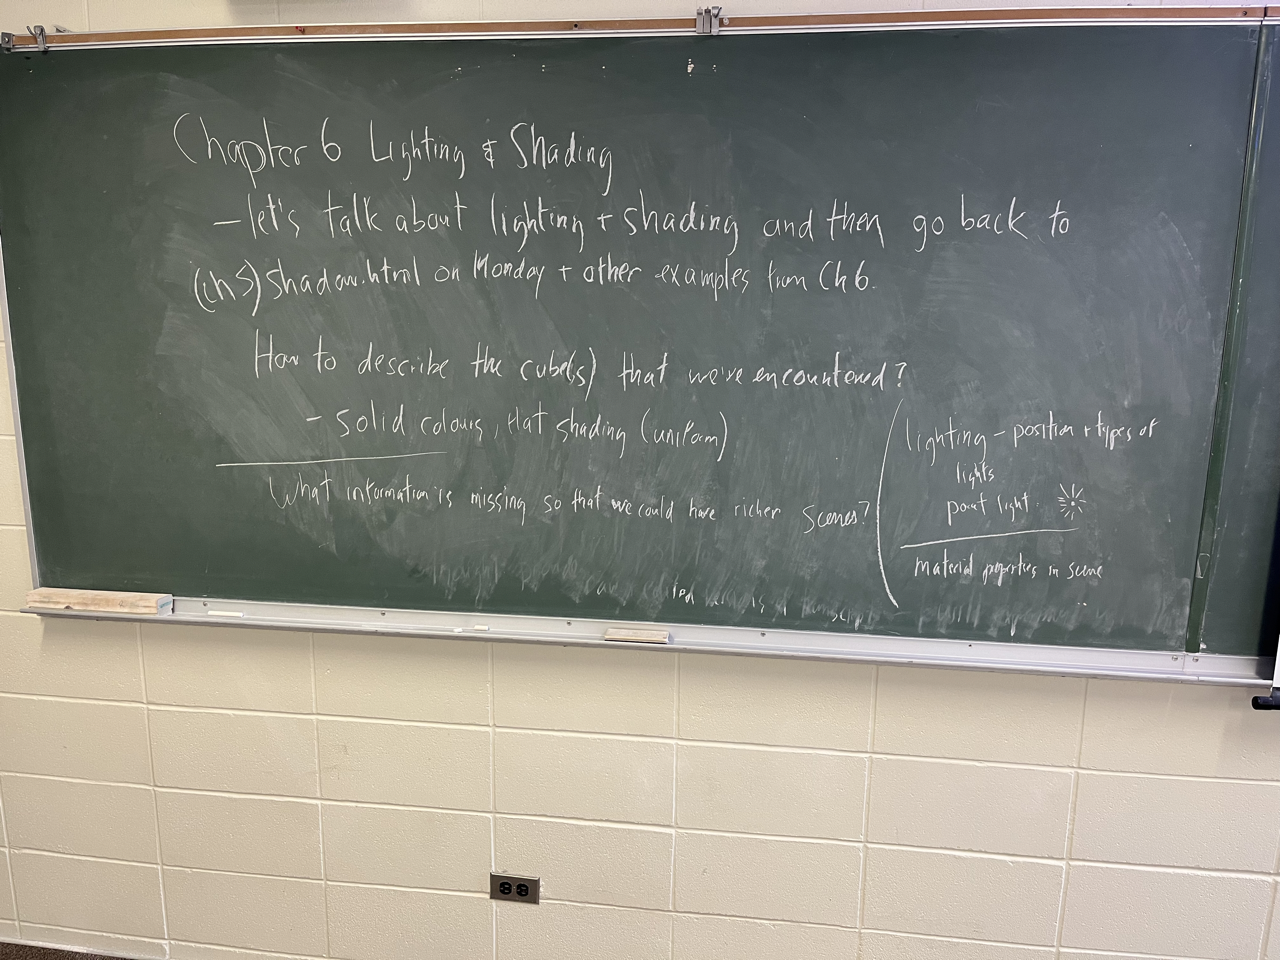 Chapter 6 Lighting & Shading
- let's talk about lighting + shading and then go back to
(ch5) shadow.html on Monday + other examples from Ch 6.
How to describe the cube(s) that we've encountered?
- solid colours, flat shading (uniform)
What information is missing so that we could have richer scenes?
lighting - position + types of
lights
point light:
material properties in scene